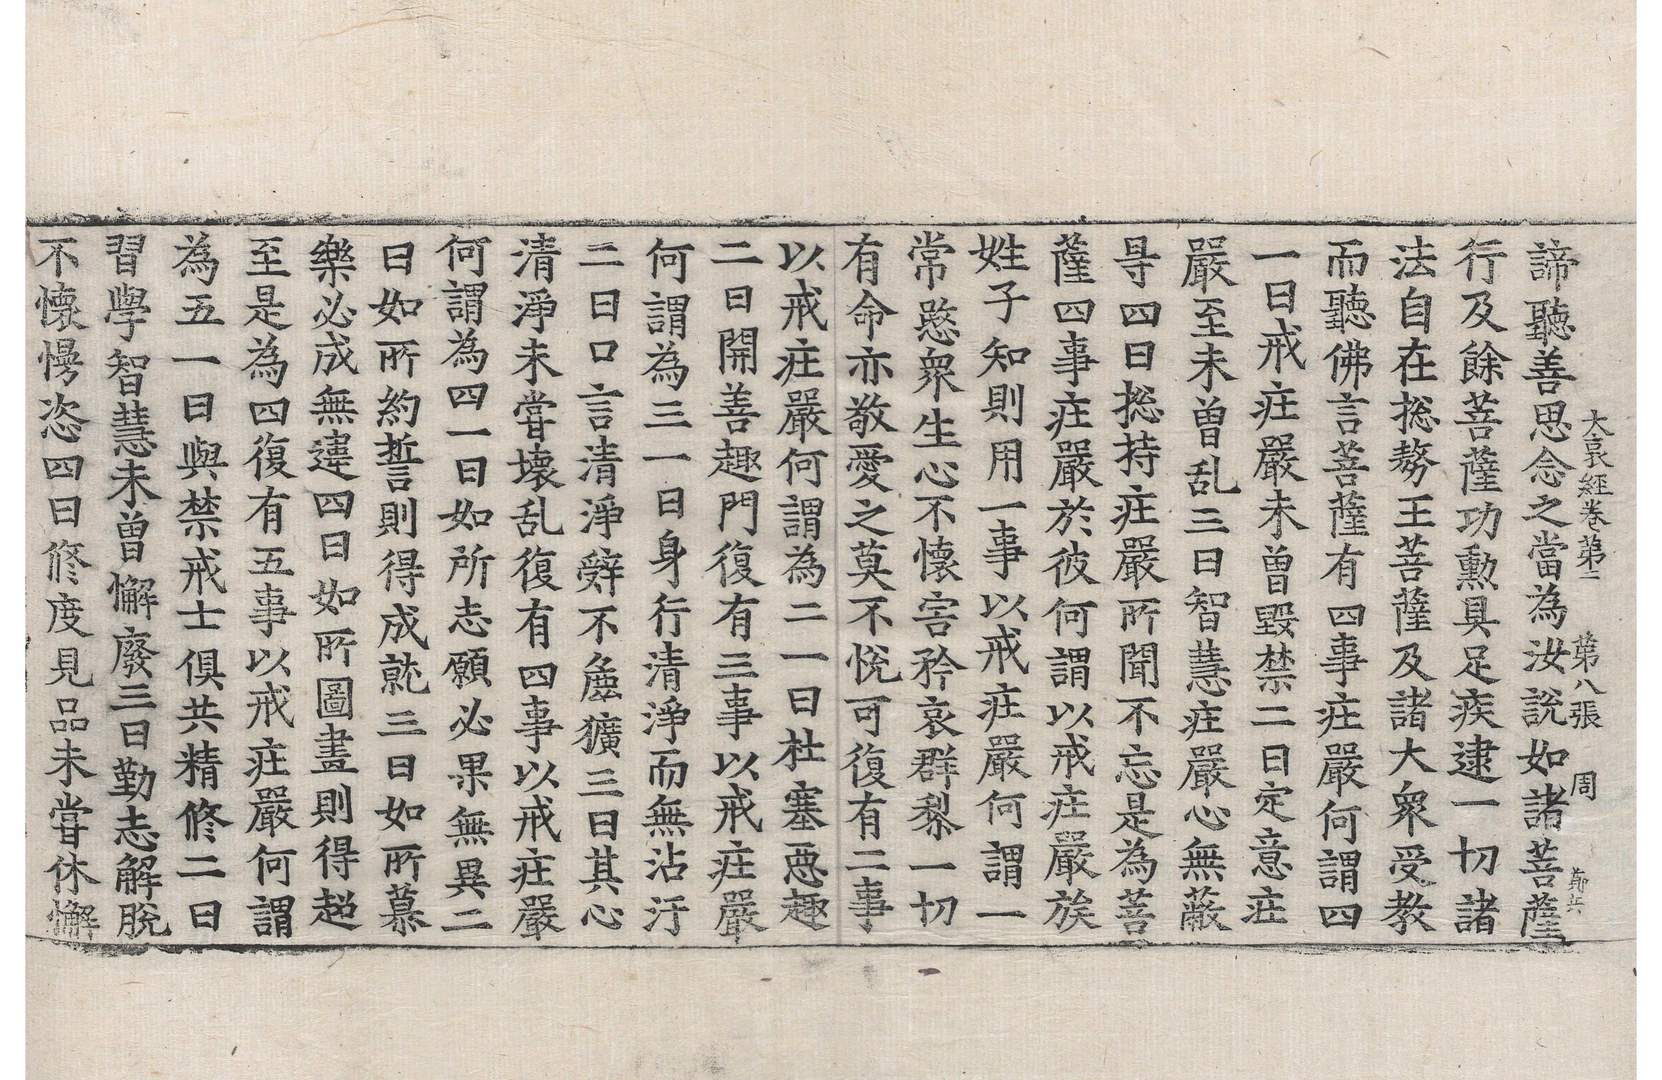 大哀經卷第二　第八張　周
諦聽善思念之當為汝說如諸菩薩
行及餘菩薩功勳具足疾逮一切諸
法自在揔勢王菩薩及諸大衆受教
而聽佛言菩薩有四事庄嚴何謂四
一曰戒庄嚴未曽毀禁二曰定意庄
嚴至未曽乱三曰智慧庄嚴心無蔽
㝵四曰揔持庄嚴所聞不忘是為菩
薩四事庄嚴於彼何謂以戒庄嚴族
姓子知則用一事以戒庄嚴何謂一
常愍衆生心不懷害矜哀群黎一切
有命亦敬愛之莫不悅可復有二事
以戒庄嚴何謂為二一曰杜塞惡趣
二曰開善趣門復有三事以戒庄嚴
何謂為三一曰身行清淨而無沾汙
二曰口言清淨辤不麁獷三曰其心
清淨未甞壞乱復有四事以戒庄嚴
何謂為四一曰如所志願必果無異二
曰如所約誓則得成就三曰如所慕
樂必成無違四曰如所圖畫則得超
至是為四復有五事以戒庄嚴何謂
為五一曰與禁戒士俱共精修二曰
習學智慧未曽懈廢三曰勤志解脫
不懷慢恣四曰修度見品未甞休懈